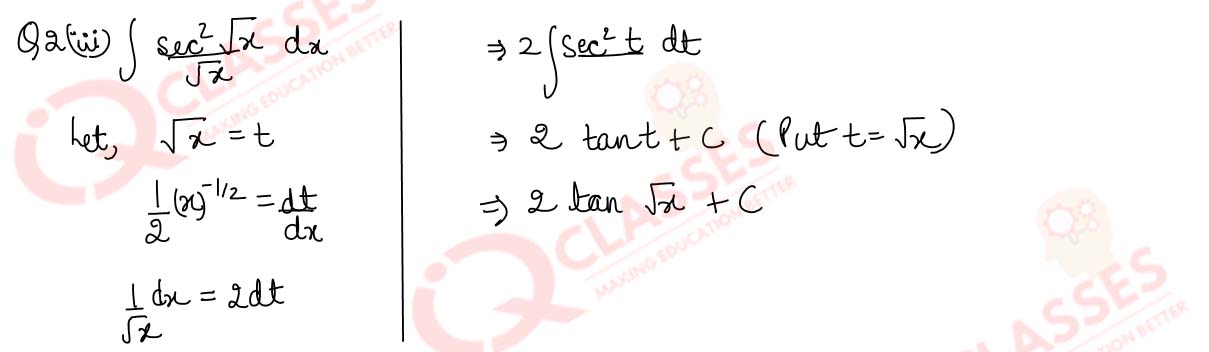 Q2(iii) ∫ sec² √x / √x dx
Let, √x = t
1/2 (x)^-1/2 = dt/dx
1/√x dx = 2dt
⇒ 2 ∫ sec² t dt
⇒ 2 tan t + C (Put t = √x)
⇒ 2 tan √x + C
IQ CLASSES
MAKING EDUCATION BETTER
IQ CLASSES
MAKING EDUCATION BETTER
LASSES
ION BETTER